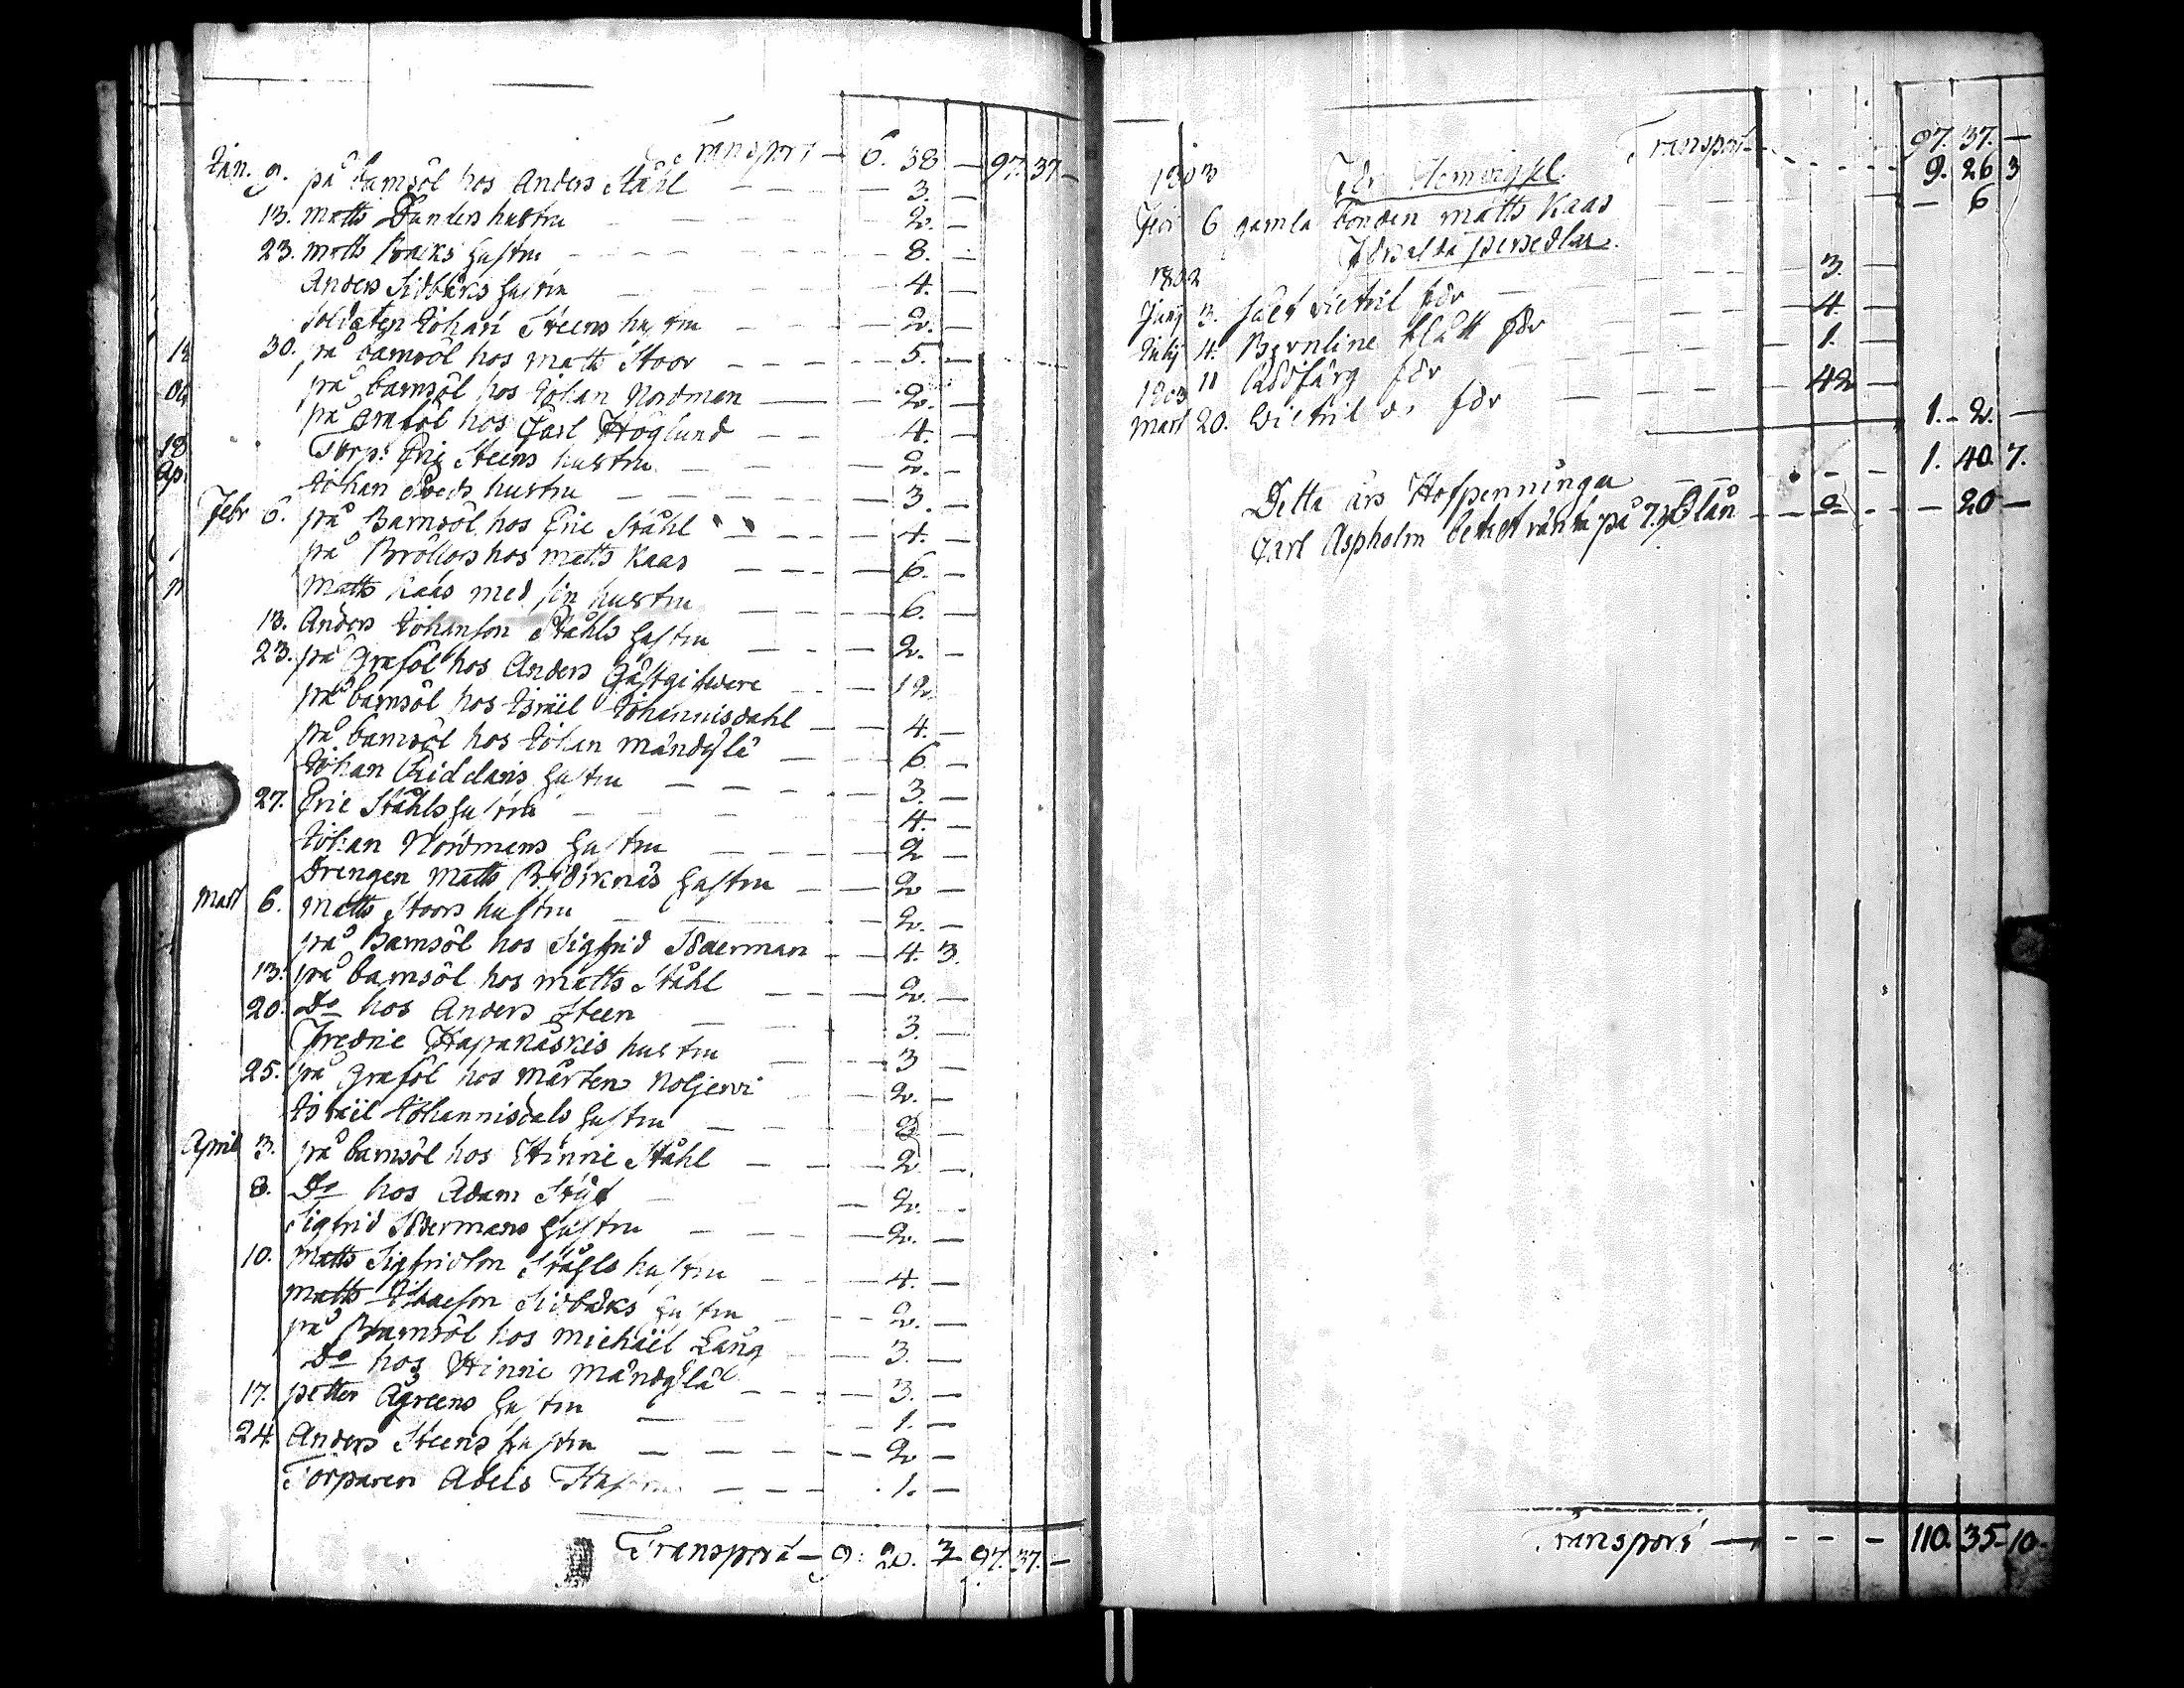 Transport – 6. 38 – 97. 37 –
Jan. 9. på barnsöl hos Anders Ståhl – – – 3. –
13. Matts Dunders hustru – – – 2. –
23. Matts hustru – – – 8. –
Anders Sidbäcks hustru – – – 4. –
Soldaten Johan Steens hustru – – – 2. –
30. på barnsöl hos Matts Stoor – – – 5. –
på barnsöl hos Johan Nordman – – 2. –
på Graföl hos Carl Höglund – – 4. –
Torp: Eric Steens hustru – – – 2. –
Johan hustru – – – 3. –
Febr 6. på Barnsöl hos Eric Ståhl – – – 4. –
på Bröllop hos Matts Kaas – – – 6. –
Matts Kaas med sin hustru – – – 6. –
13. Anders Johanson Ståhls hustru – – – 2. –
23. på Graföl hos Anders Gästgifware – – 12
på barnsöl hos Israël Johannisdahl – – 4. –
på barnsöl hos Johan Mändylä – – 6. –
Johan Riddaris hustru – – – 3. –
27. Eric Ståhls hustru – – – 4. –
Johan Nordmans hustru – – – 2 –
Drengen Matts Björknäs hustru – – 2 –
Mart 6. Matts Stoors hustru – – – 2. –
på Barnsöl hos Sigfrid Söderman – – 4. 3.
13. på barnsöl hos Matts Ståhl – – – 2. –
20. Do hos Anders Steen – – – 3. –
Fredric hustru – – – 3 –
25. på Graföl hos Mårten Noljervi – – 2. –
Israël Johannisdals hustru – – – –
April 3. på barnsöl hos Hinric Ståhl – – – 2 –
8. Do hos Adam – – 2. –
Sigfrid Södermans hustru – – – 2. –
10. Matts Sigfridson Ståhls hustru – – – 4. –
Matts Sidbäcks hustru – – – 2. –
på Barnsöl hos Michaël Lång – – 3. –
Do hos Hinric Mändylä – – – 3. –
17. Petter Ågreens hustru – – – 1. –
24. Anders Steens hustru – – – 2 –
Torparen Abels – – – 1. –
Transport – 9. 20. 3 97. 37. –
Transport – – – 97. 37. –
1803 För – – – 9. 26 3
Febr 6 gamla bonden Matts Kaas – – – 6
Försålda persedlar.
1802
Junij 3. för – – – 3. –
Julij 4. blått för – – – 4. –
11 Rödfärg för – – – 1. –
1803
Mart 20. för – – – 42 –
1. – 2. –
Detta års Hofpenningar – – – 1. 40. 7.
Carl Aspholm betalt ränta på lån – – – 20 –
Transport – – – 110. 35. 10.